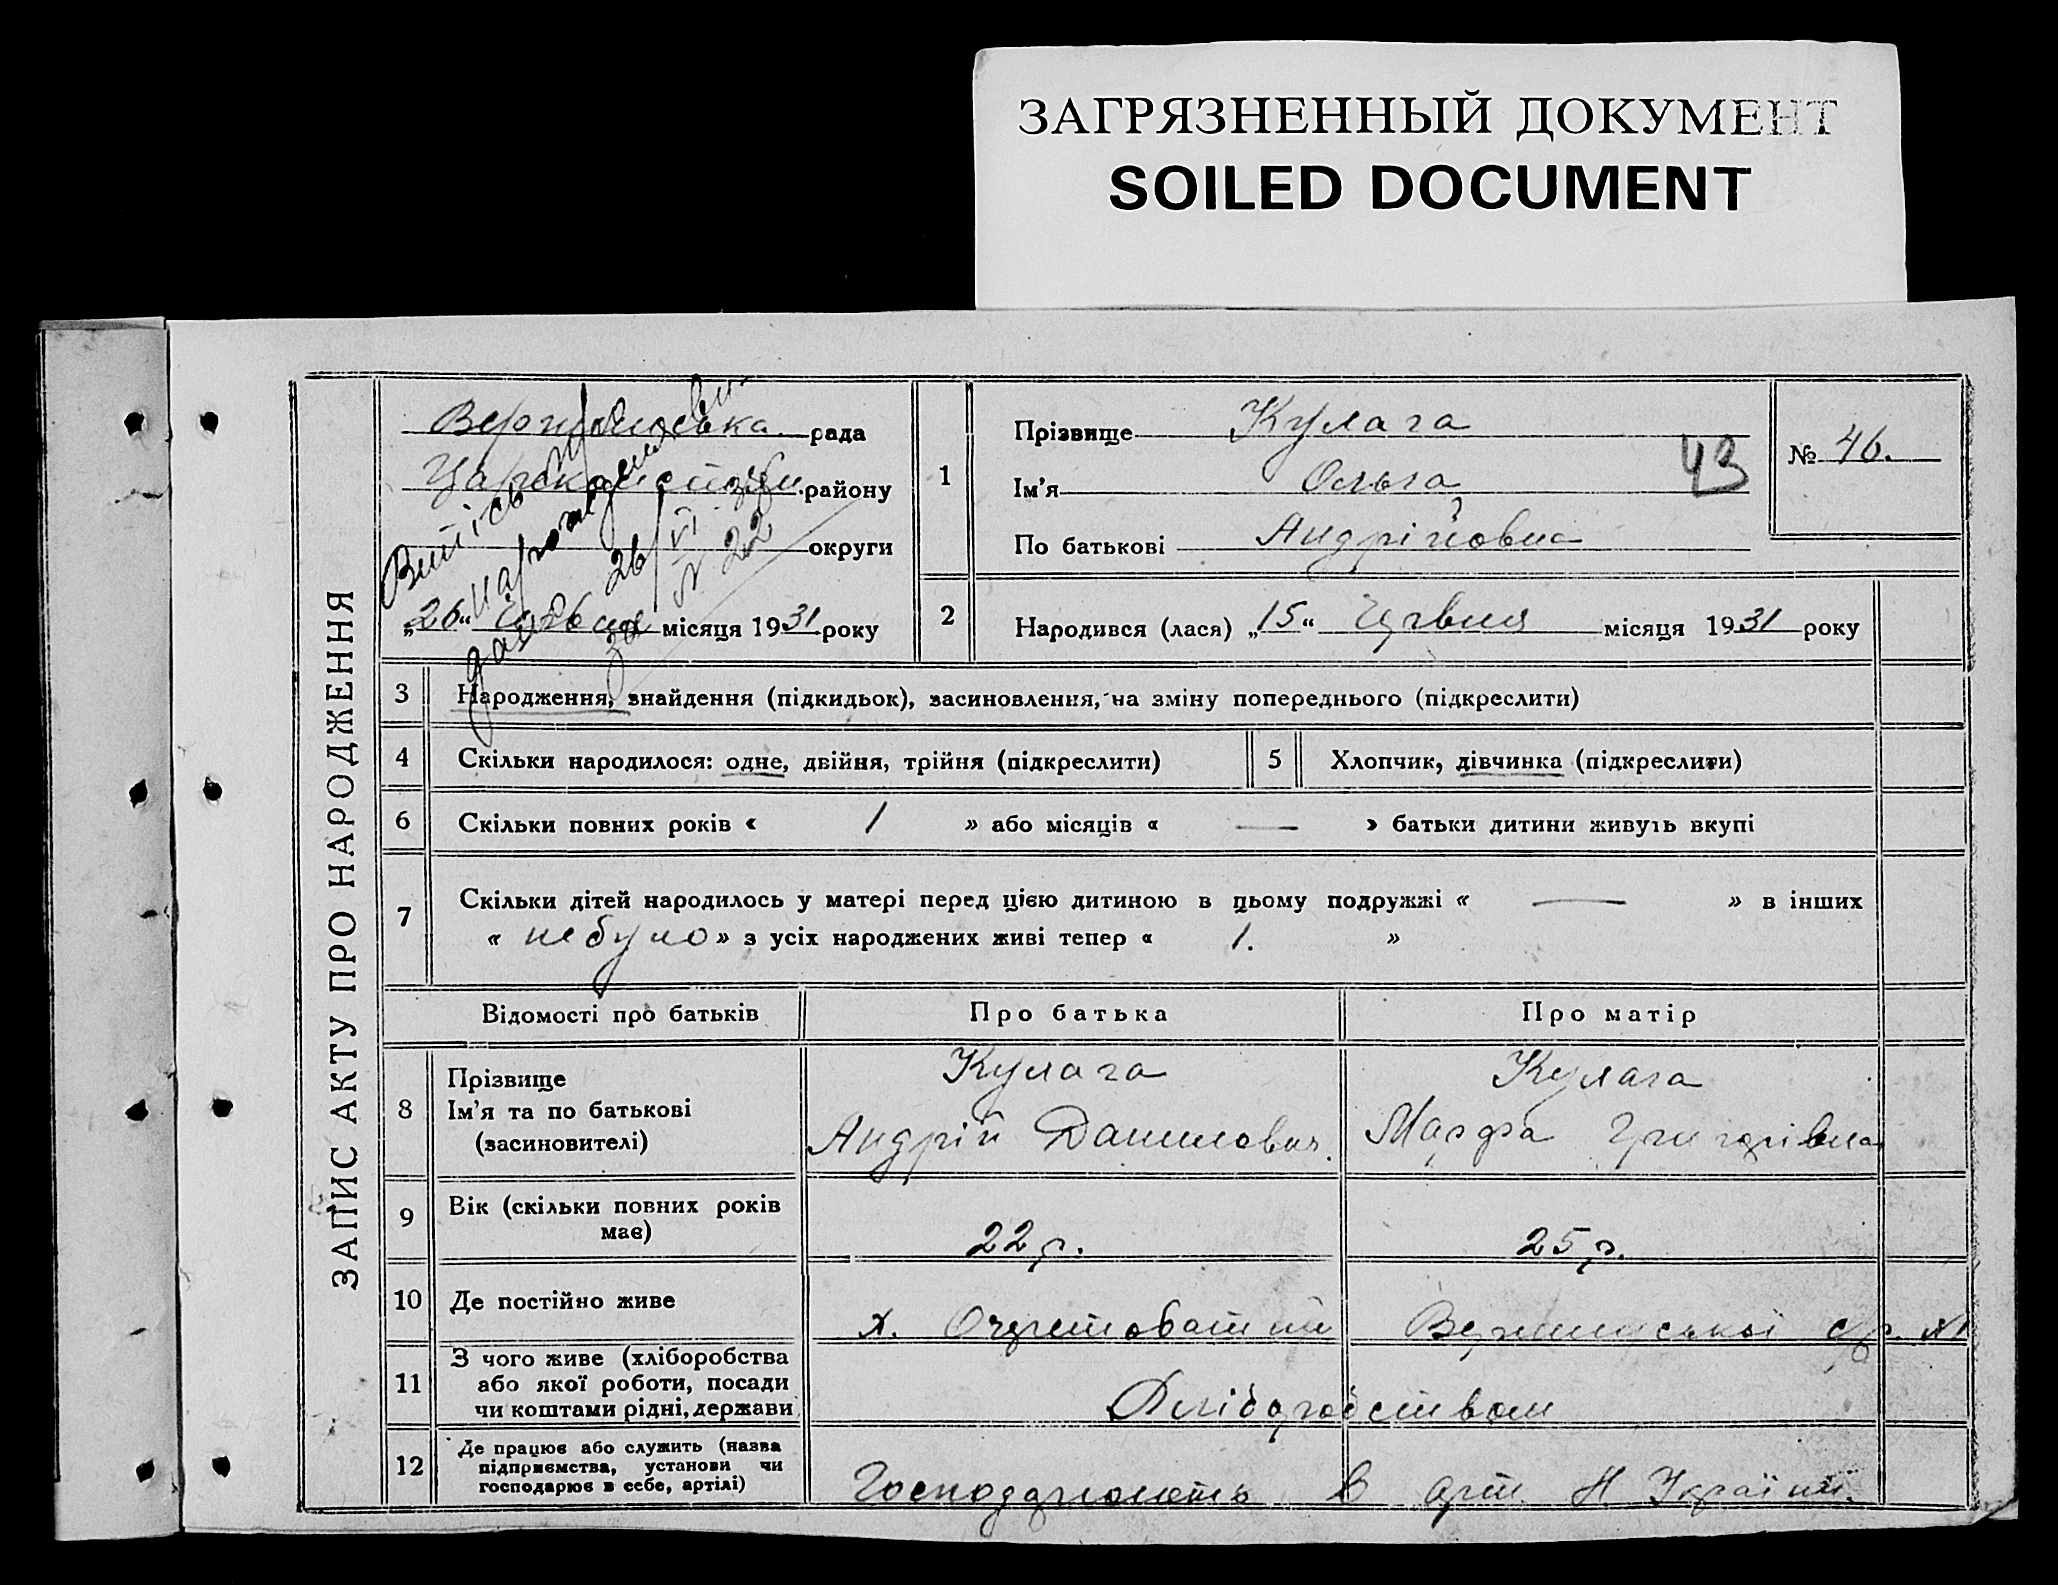 ЗАГРЯЗНЕННЫЙ ДОКУМЕНТ
SOILED DOCUMENT
ЗАПИС АКТУ ПРО НАРОДЖЕННЯ
рада
району
округи
„26“ Червня місяця 1931 року
Витісь про
народженн
дано 26/VI
за № 22
1
Прізвище Кулага
Ім'я Ольга
По батькові Андрійовна
43
№ 46.
2 Народився (лася) „15“ Червня місяця 1931 року
3 Народження, знайдення (підкидьок), засиновлення, на зміну попереднього (підкреслити)
4 Скільки народилося: одне, двійня, трійня (підкреслити) 5 Хлопчик, дівчинка (підкреслити)
6 Скільки повних років « 1 » або місяців « — » батьки дитини живуть вкупі
7 Скільки дітей народилось у матері перед цією дитиною в цьому подружжі « — » в інших
« не було » з усіх народжених живі тепер « 1. »
Відомості про батьків Про батька Про матір
8 Прізвище Кулага Кулага
Ім'я та по батькові Андрій Данилович. Марфа Григорівна
(засиновителі)
9 Вік (скільки повних років 22 р. 25 р.
має)
10 Де постійно живе х. Очеретоватий с/р. №1
11 З чого живе (хліборобства
або якої роботи, посади
чи коштами рідні, держави Хліборобством
12 Де працює або служить (назва
підприємства, установи чи
господарює в себе, артілі) Господарюють в арт. Н Україні.